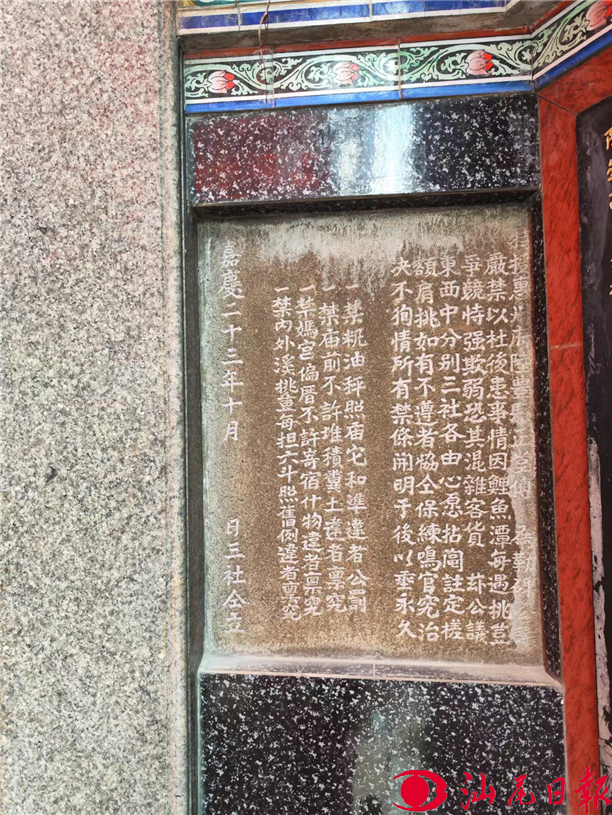 特授惠州府陸豐縣正堂傅 為勒碑
嚴禁以杜後患事情因鯉魚潭每遇挑荳
爭競恃强欺弱恐其混雜客貨 茲公議
東西中分别三社各由心愿拈鬮註定槎
額肩挑如有不遵者協仝保練鳴官究治
决不狥情所有禁條開明于後以垂永久
一禁糀油秤照庙宅和準違者公罰
一禁庙前不許堆積糞土違者禀究
一禁媽宫偏厝不許寄宿什物違者禀究
一禁內外溪挑荳每担六斗照舊例違者禀究
嘉慶二十三年十月 日三社仝立
汕尾日報